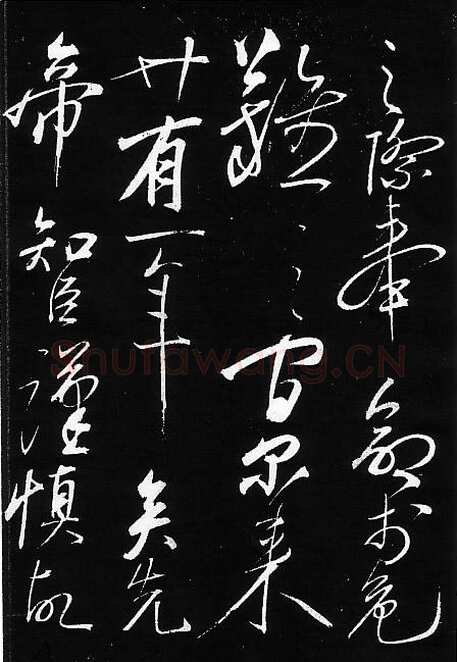 之際奉命於危
難之間尔来
廿有一年矣先
帝知臣謹慎故
Shufawang.CN